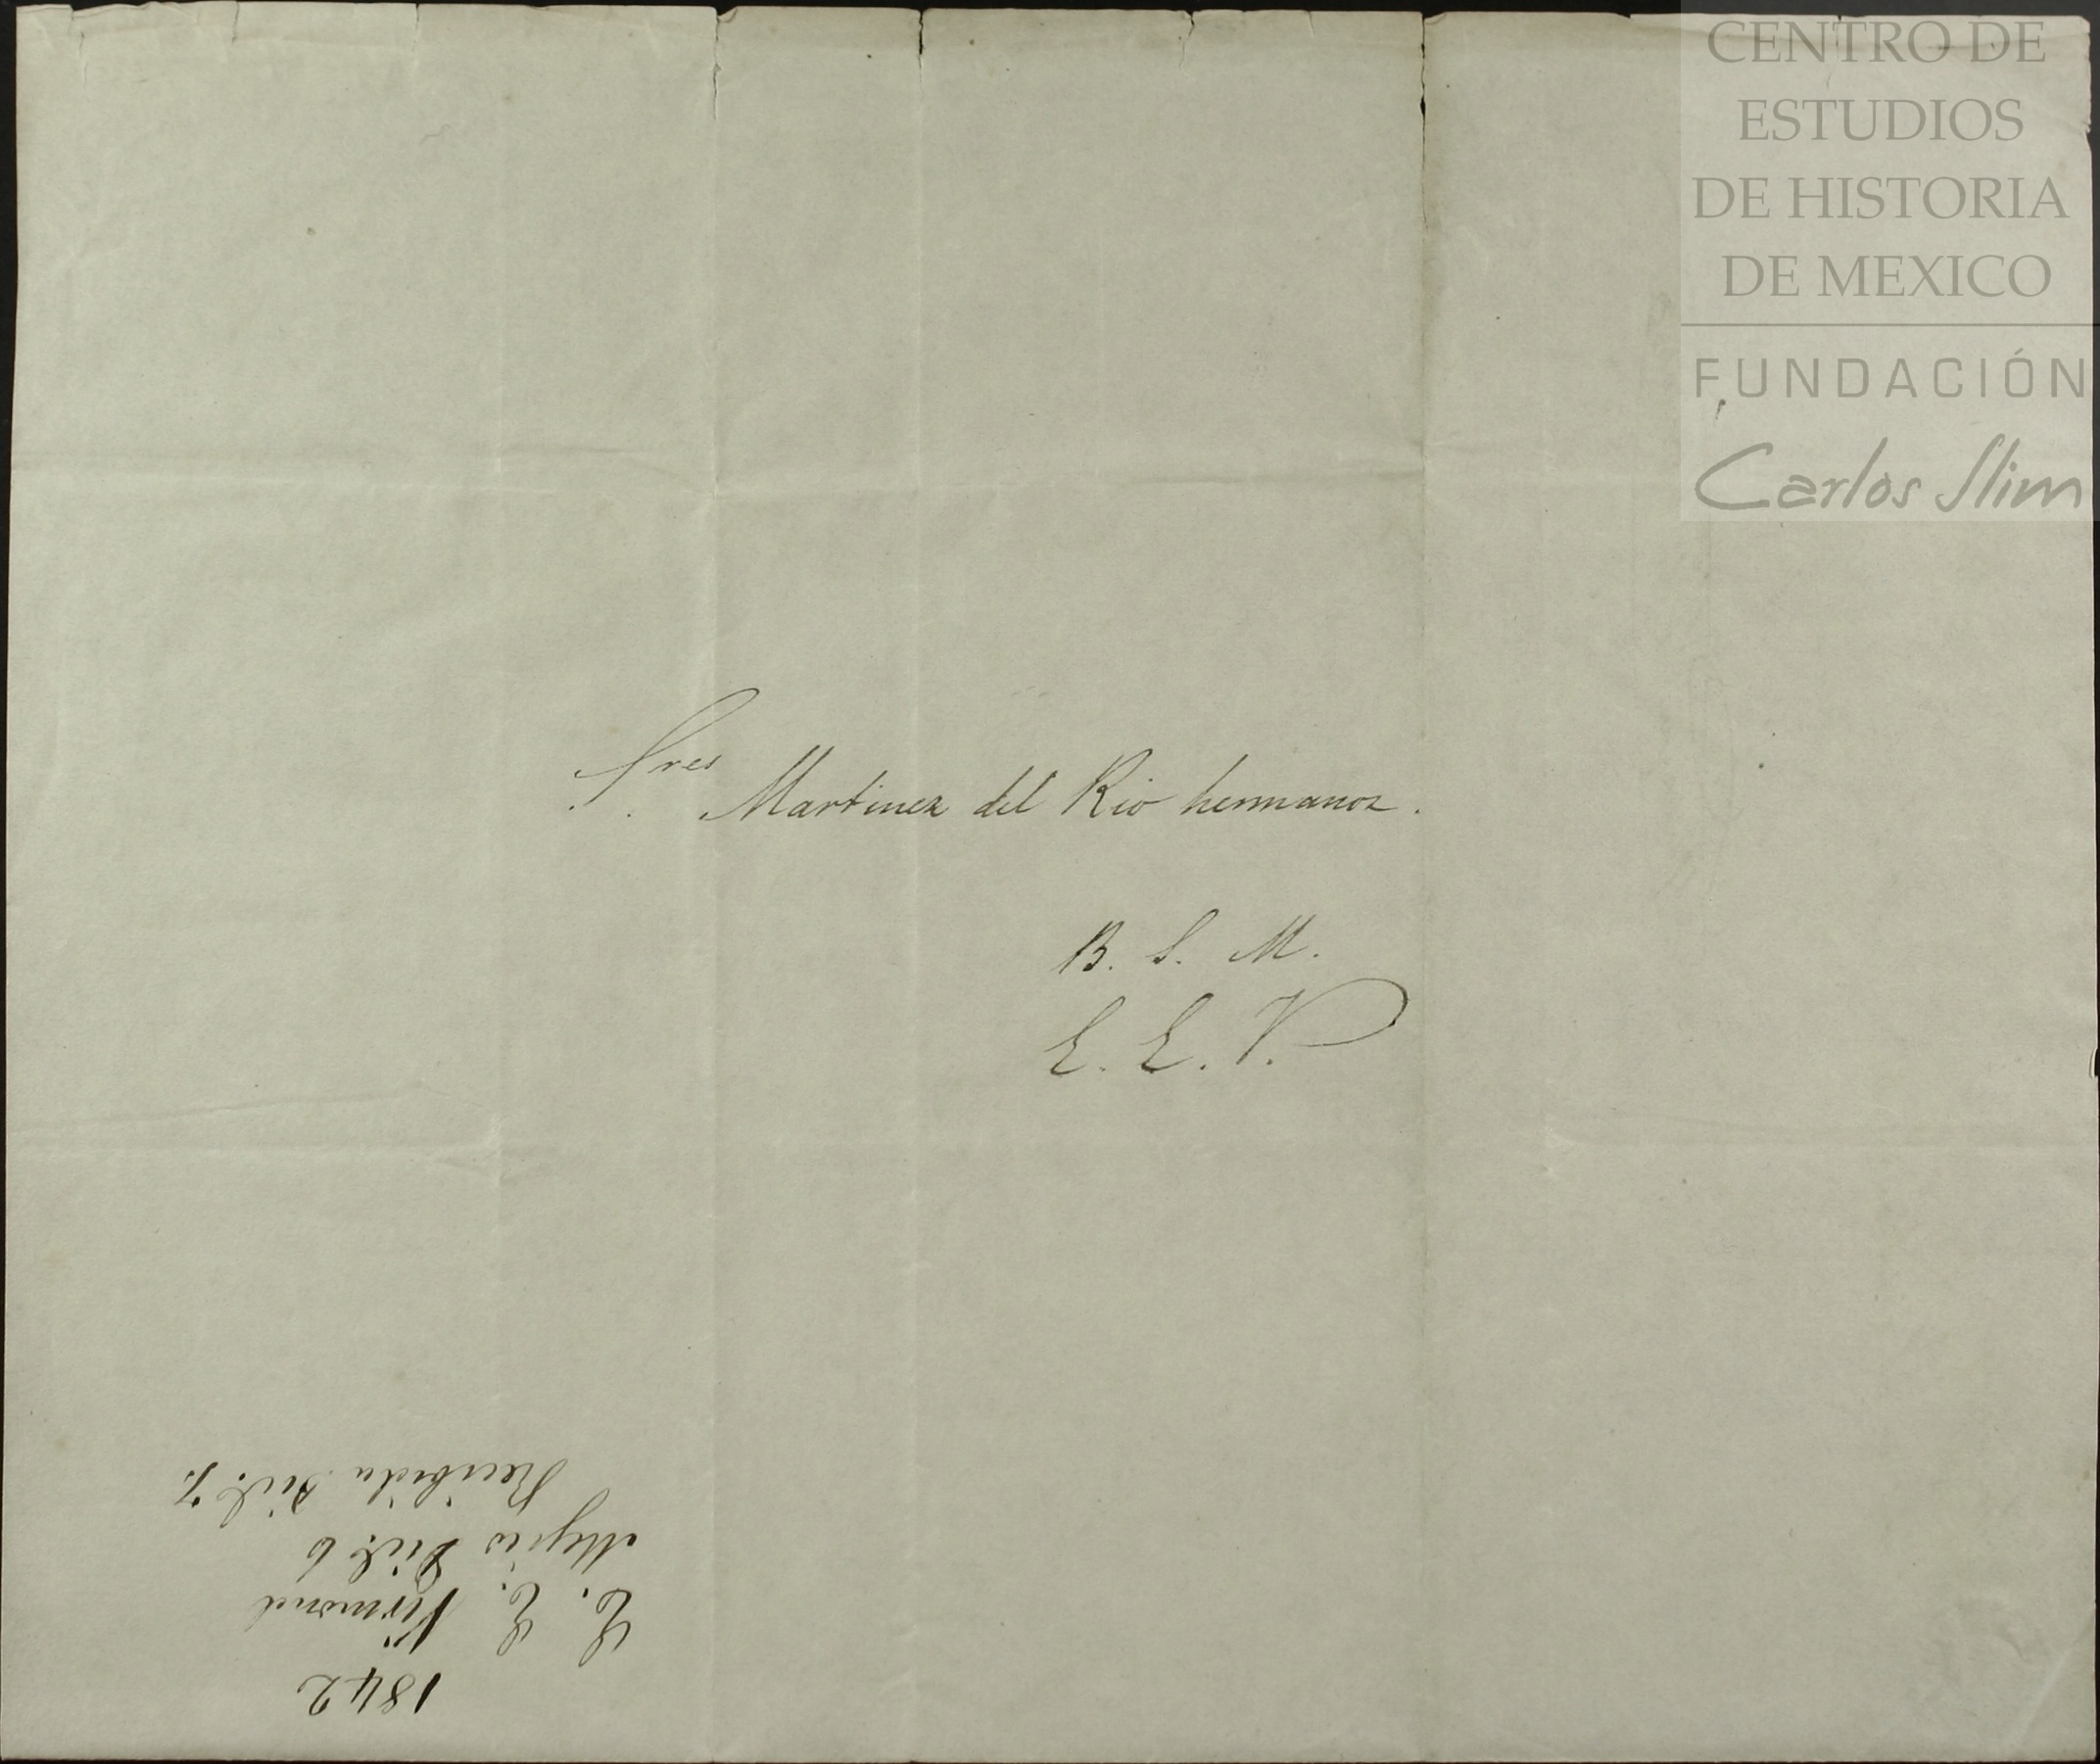 CENTRO DE
ESTUDIOS
DE HISTORIA
DE MEXICO
FUNDACIÓN
Carlos Slim
Sres
Martinez del Rio hermanos.
B. S. M.
E. E. V.
1842
E. E. Virmond
Mejico Dice. 6
Recibida Dice. 7.